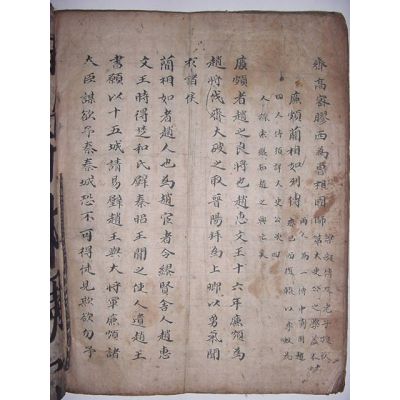 齊高密膠西為曹相國師
廉頗藺相如列傳
四人傳須詳太史公次四
人線索纔知趙之興亡矣
廉頗者趙之良將也趙惠文王十六年廉頗為
趙將伐齊大破之取晉陽拜為上卿以勇氣聞
於諸侯
藺相如者趙人也為趙宦者令繆賢舍人趙惠
文王時得楚和氏璧秦昭王聞之使人遺趙王
書願以十五城請易璧趙王與大將軍廉頗諸
大臣謀欲予秦秦城恐不可得徒見欺欲勿予